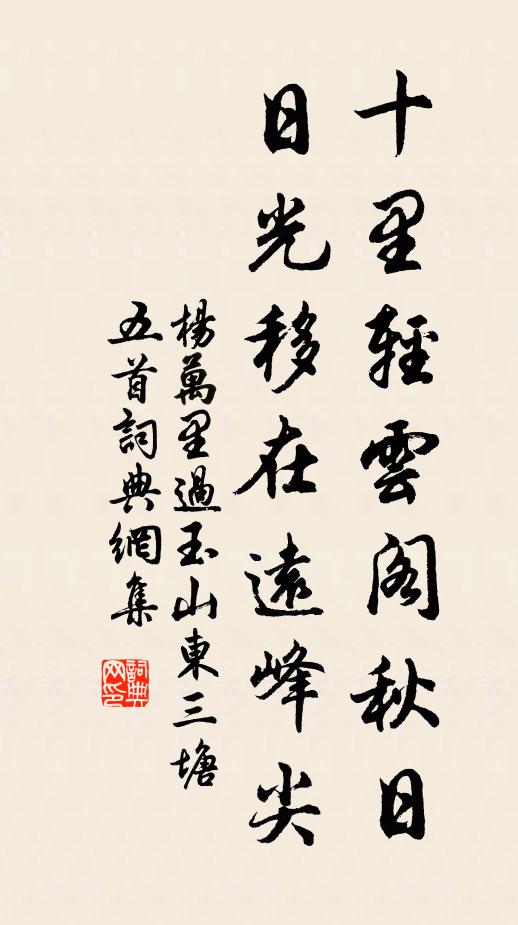 十里輕雲閣秋日
日光移在遠峰尖
楊萬里過玉山東三塘
五首詞典網集
詞典网印